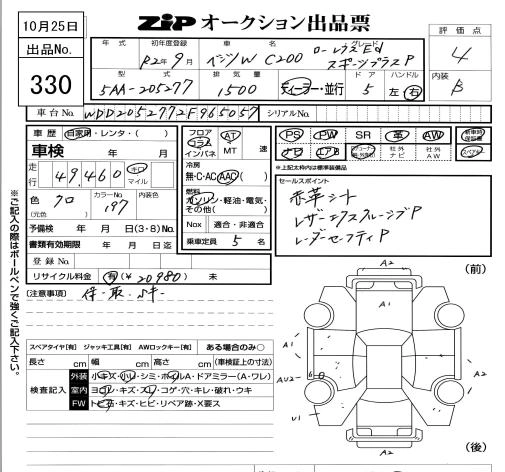 10月25日
出品No.
330
ZiP オークション出品票
評価点
4
内装
B
年式 初年度登録 車名 グレード
R2年9月 ベンツW C200 ローレウスEd
スポーツプラスP
型式 排気量 ドア ハンドル
5AA-205277 1500 ディーラー・並行 5 左 右
車台No. WDD2052772F965057 シリアルNo.
車歴 自家用・レンタ・( )
車検 年 月
走行 49,460 キロ マイル
色 クロ カラーNo. 197 内装色
(元色)
予備検 年 月 日(3・8)No.
書類有効期限 年 月 日迄
登録No.
リサイクル料金 有(¥20980) 未
フロア
コラム
インパネ
AT
MT 速
冷房
無・C・AC・AAC( )
燃料
ガソリン・軽油・電気・
その他( )
Nox 適合・非適合
乗車定員 5 名
PS PW SR 革 AW 新車時保証書
ナビ エアB 社外ナビ 社外AW
*上記太枠内は標準装備品
セールスポイント
赤革シート
レザーエクスクルーシブP
レーダーセーフティP
[注意事項] 保・取・Sキー
スペアタイヤ[有] ジャッキ工具[有] AWロックキー[有] ある場合のみ○
長さ cm 幅 cm 高さ cm (車検証上の寸法)
検査記入
外装 小キズ・小凹・シミ・ホイルA・ドアミラー(A・ワレ)
室内 ヨゴレ・キズ・スレ・コゲ・穴・キレ・破れ・ウキ
FW トビ石・キズ・ヒビ・リペア跡・X要ス
※ご記入の際はボールペンで強くご記入下さい。
(前)
A2
A1
A1
A1
AU2
U1
A2
(後)